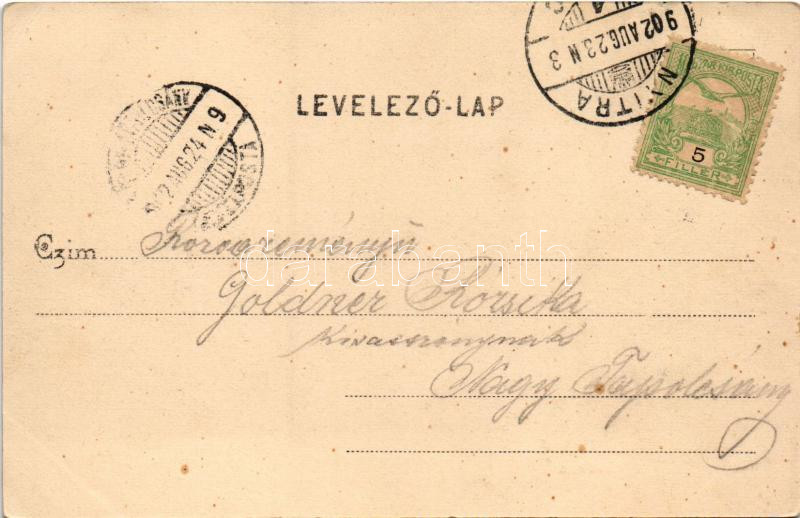 NYITRA
902 AUG. 23 N 3
MAGYAR KIR. POSTA
5
FILLÉR
LEVELEZŐ-LAP
902 AUG 24 N 9
Czim
Goldner Rozsika
Kisasszonynak
Nagy Tapolcsány
darabanth